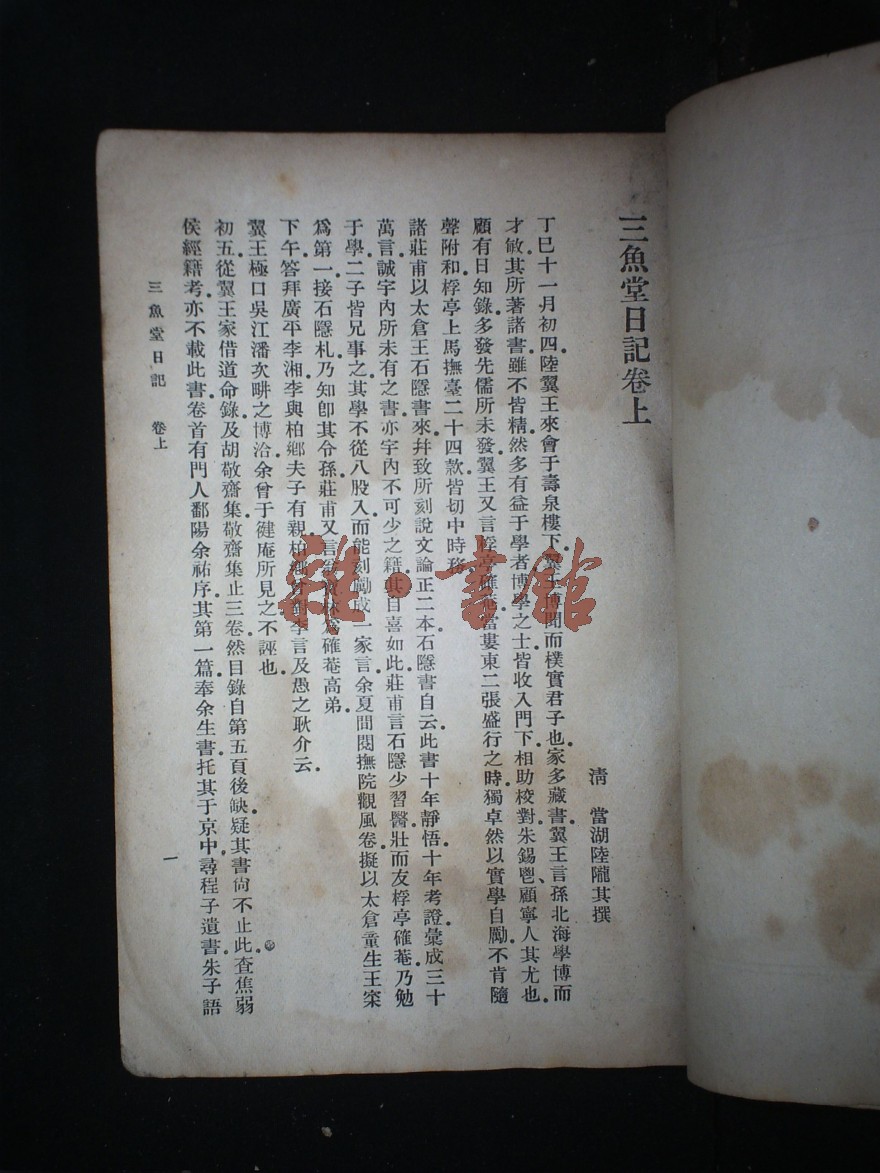 三魚堂日記卷上
清　當湖陸隴其撰
丁巳十一月初四陸翼王來會于壽泉樓下翼王博聞而樸實君子也家多藏書翼王言孫北海學博而
才敏其所著諸書雖不皆精然多有益于學者博學之士皆收入門下相助校對朱錫鬯、顧寧人其尤也
顧有日知錄多發先儒所未發翼王又言桴亭確菴當婁東二張盛行之時獨卓然以實學自勵不肯隨
聲附和桴亭上馬撫臺二十四款皆切中時務
諸莊甫以太倉王石隱書來幷致所刻說文論正二本石隱書自云此書十年靜悟十年考證彙成三十
萬言誠宇內所未有之書亦宇內不可少之籍其自喜如此莊甫言石隱少習醫壯而友桴亭確菴乃勉
于學二子皆兄事之其學不從八股入而能刻勵成一家言余夏間閱撫院觀風卷擬以太倉童生王寀
爲第一接石隱札乃知卽其令孫莊甫又言爲確菴高弟
下午答拜廣平李湘李與柏鄉夫子有親柏鄉李言及愚之耿介云
翼王極口吳江潘次畊之博洽余曾于健庵所見之不誣也
初五從翼王家借道命錄及胡敬齋集敬齋集止三卷然目錄自第五頁後缺疑其書尙不止此查焦弱
侯經籍考亦不載此書卷首有門人鄱陽余祐序其第一篇奉余生書托其于京中尋程子遺書朱子語
三魚堂日記　卷上
一
雜·書館